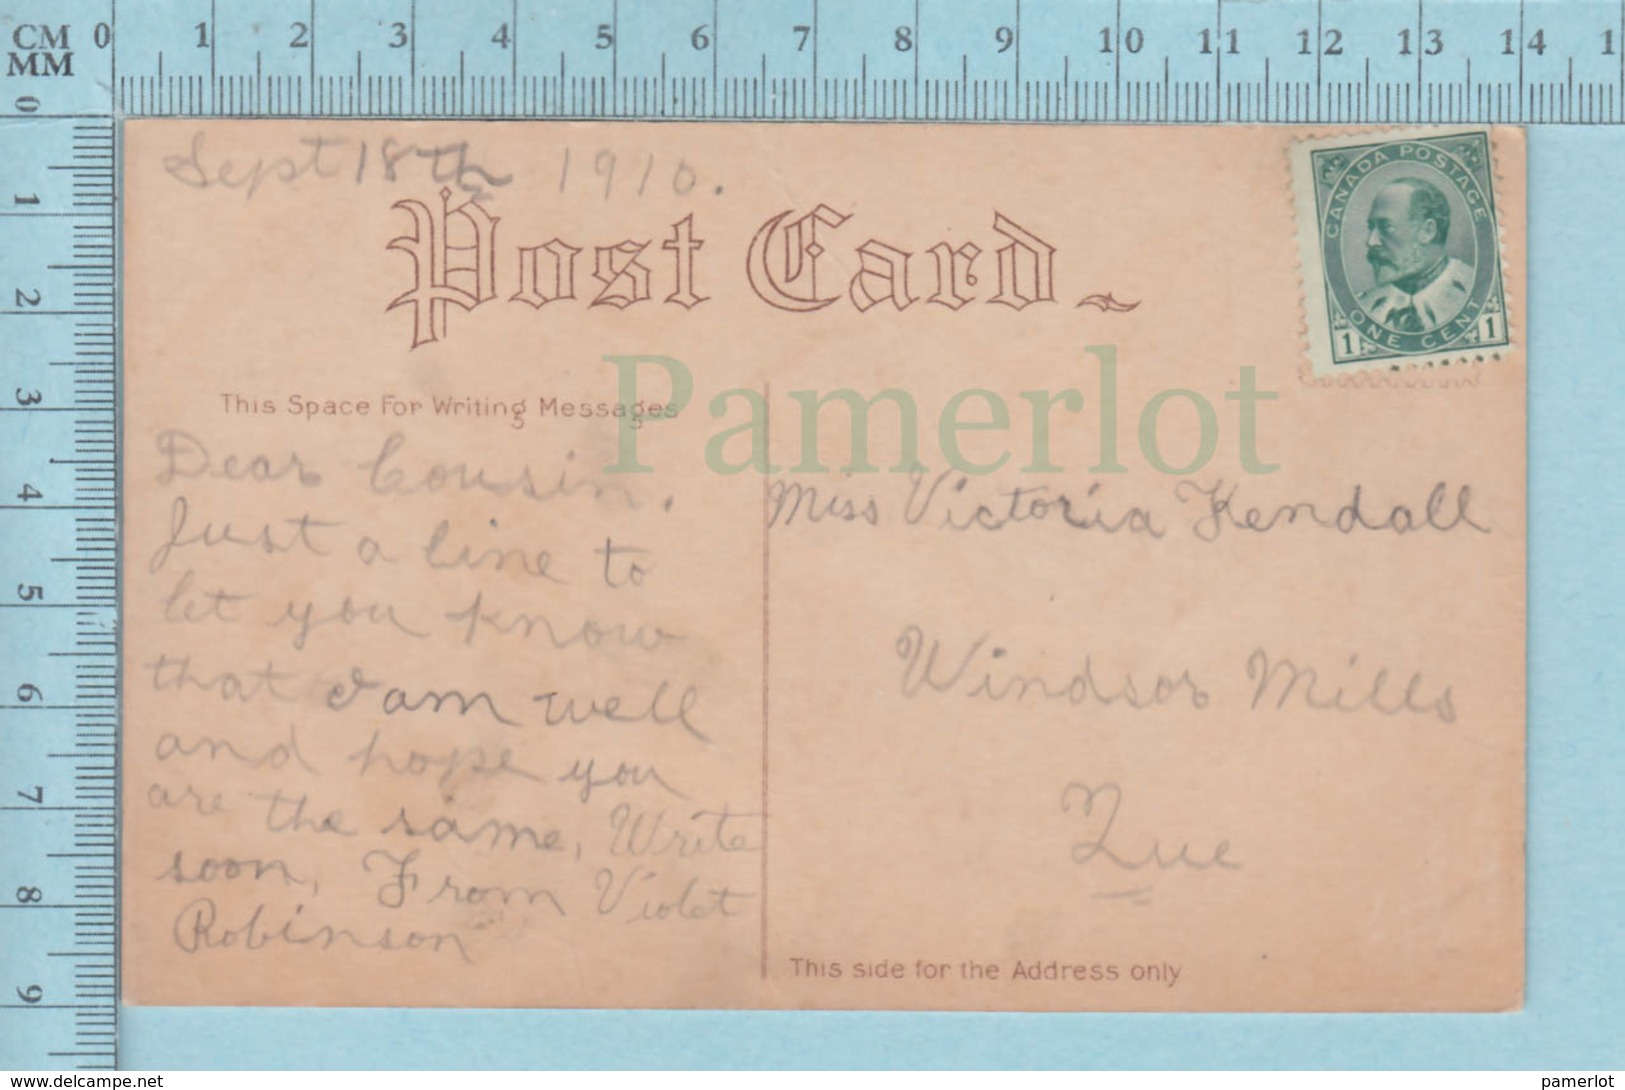 CM 0 1 2 3 4 5 6 7 8 9 10 11 12 13 14 1
MM
0 1 2 3 4 5 6 7 8 9
Sept 18th 1910.
Post Card
CANADA POSTAGE
ONE CENT
1 1
Pamerlot
This Space For Writing Messages
Dear Cousin.
Just a line to
let you know
that I am well
and hope you
are the same, Write
soon, From Violet
Robinson
Miss Victoria Kendall
Windsor Mills
Que
This side for the Address only
http://www.delcampe.net
pamerlot